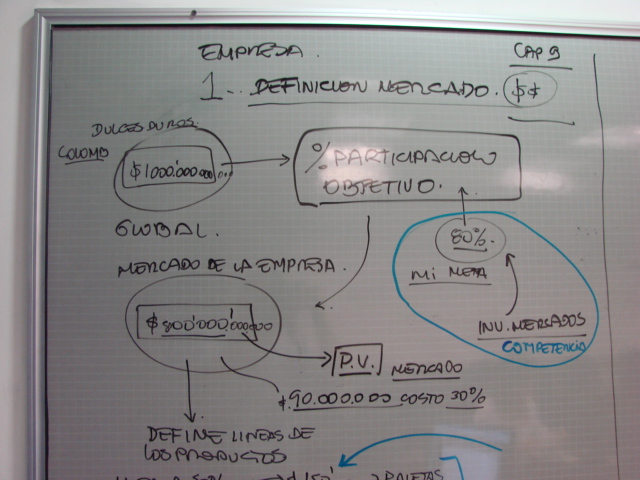 EMPRESA.
CAP 9
1.. DEFINICION MERCADO. $$
DULCES DUROS.
COLOMB
$1000.000.000.000
% PARTICIPACION
OBJETIVO.
GLOBAL.
80%.
MI META
MERCADO DE LA EMPRESA.
$800.000.000.000
INV. MERCADOS
COMPETENCIA
P.V. MERCADO
$90.000.000 COSTO 30%
DEFINE LINEAS DE
LOS PRODUCTOS